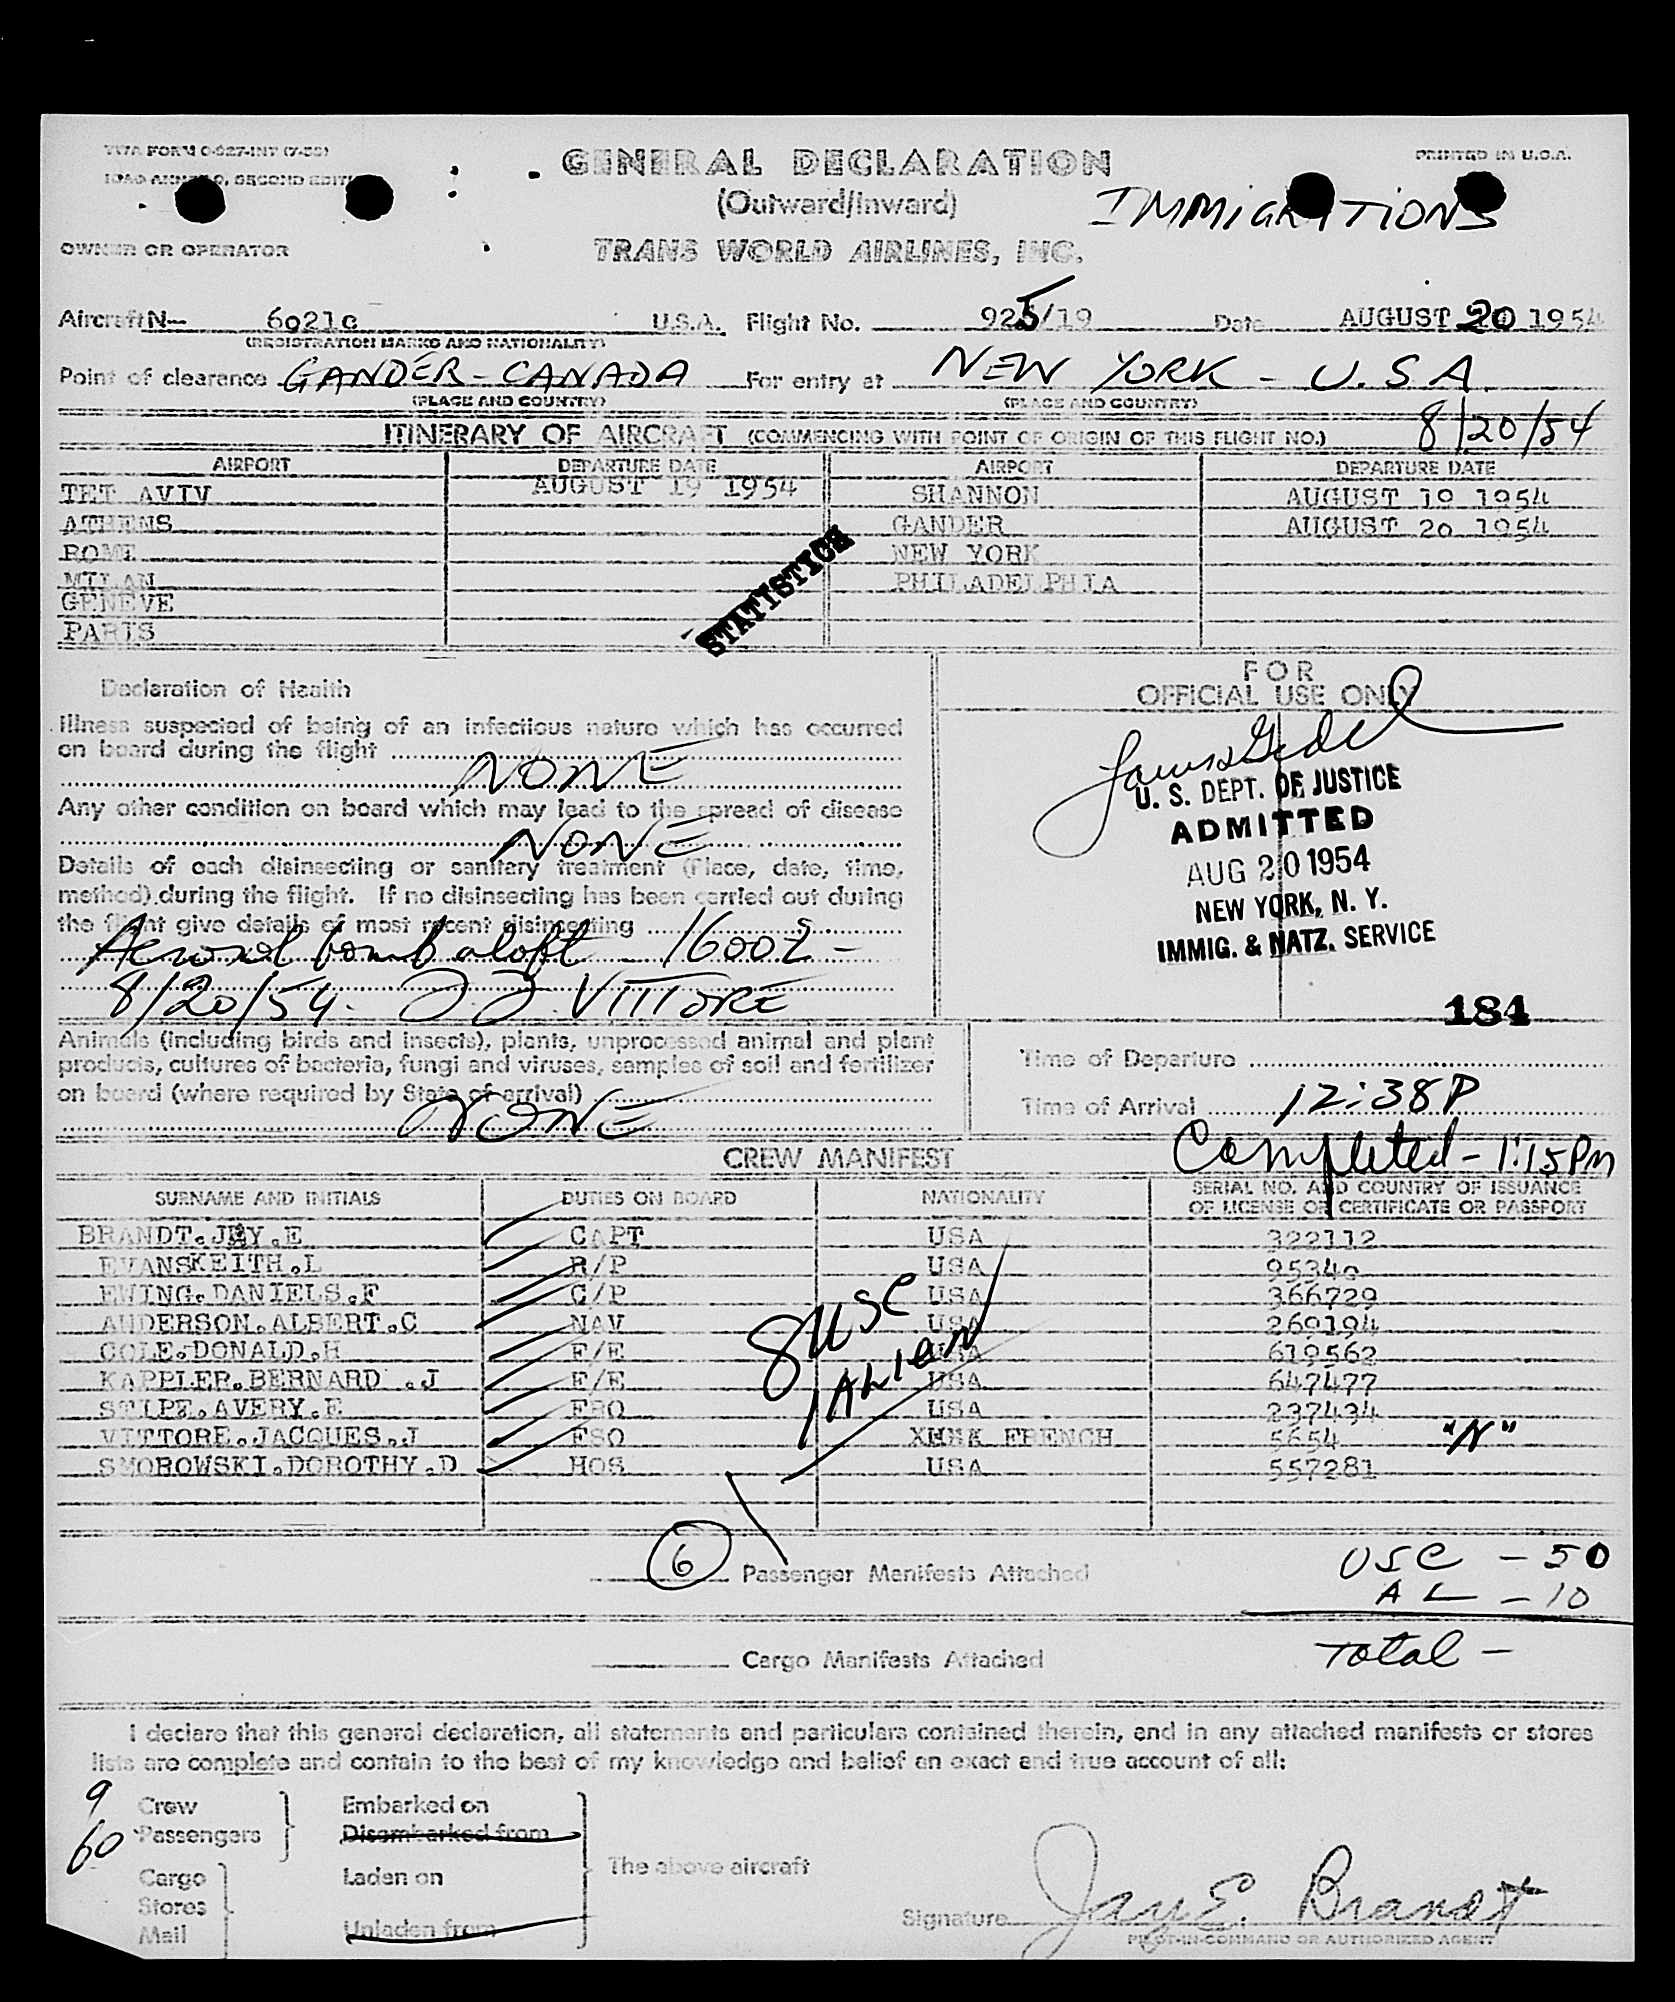 TWA FORM O-927-INT (7-53)
PRINTED IN U.S.A.
ICAO ANNEX 9, SECOND EDITION
GENERAL DECLARATION
(Outward/Inward)
IMMIGRATIONS
OWNER OR OPERATOR TRANS WORLD AIRLINES, INC.
Aircraft N- 6021c U.S.A. Flight No. 925/19 Date AUGUST 20 1954
(REGISTRATION MARKS AND NATIONALITY)
Point of clearance GANDER - CANADA For entry at NEW YORK - U.S.A.
(PLACE AND COUNTRY) (PLACE AND COUNTRY)
ITINERARY OF AIRCRAFT (COMMENCING WITH POINT OF ORIGIN OF THIS FLIGHT NO.) 8/20/54
AIRPORT DEPARTURE DATE AIRPORT DEPARTURE DATE
TET AVIV AUGUST 19 1954 SHANNON AUGUST 19 1954
ATHENS GANDER AUGUST 20 1954
ROME NEW YORK
MILAN PHILADELPHIA
GENEVE
PARIS
STATISTICS
Declaration of Health
Illness suspected of being of an infectious nature which has occurred
on board during the flight
NONE
Any other condition on board which may lead to the spread of disease
NONE
Details of each disinsecting or sanitary treatment (Place, date, time,
method) during the flight. If no disinsecting has been carried out during
the flight give details of most recent disinsecting
Aerosol bomb aloft - 1600Z -
8/20/54. J J VITTORE
FOR
OFFICIAL USE ONLY
U. S. DEPT. OF JUSTICE
ADMITTED
AUG 20 1954
NEW YORK, N. Y.
IMMIG. & NATZ. SERVICE
184
Animals (including birds and insects), plants, unprocessed animal and plant
products, cultures of bacteria, fungi and viruses, samples of soil and fertilizer
on board (where required by State of arrival)
NONE
Time of Departure
Time of Arrival 12:38P
Completed - 1:15 PM
CREW MANIFEST
SURNAME AND INITIALS DUTIES ON BOARD NATIONALITY SERIAL NO. AND COUNTRY OF ISSUANCE
OF LICENSE OR CERTIFICATE OR PASSPORT
BRANDT.JAY.E CAPT USA 322112
EVANSKEITH.L R/P USA 95340
EWING.DANIELS.F C/P USA 366729
ANDERSON.ALBERT.C NAV USA 269194
COLE.DONALD.H F/E USA 619562
KAPPLER.BERNARD .J F/E USA 647477
STIPE.AVERY.E FRO USA 237434
VITTORE.JACQUES.J FSO FRENCH 5654 "N"
SMOROWSKI.DOROTHY.D HOS USA 557281
8 USC
1 ALIEN
6 Passenger Manifests Attached
USC - 50
AL - 10
Cargo Manifests Attached
Total -
I declare that this general declaration, all statements and particulars contained therein, and in any attached manifests or stores
lists are complete and contain to the best of my knowledge and belief an exact and true account of all:
9 Crew Embarked on
60 Passengers Disembarked from
The above aircraft
Cargo Laden on
Stores
Mail Unladen from
Signature Jay E. Brandt
PILOT-IN-COMMAND OR AUTHORIZED AGENT